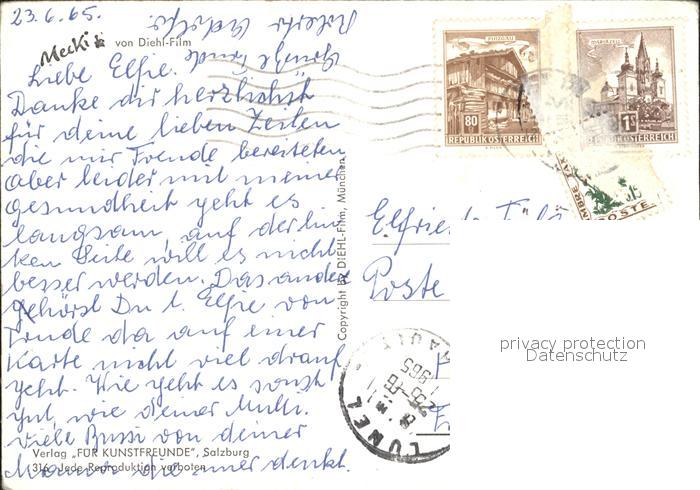 23.6.65.
Mecki von Diehl-Film
Liebe Elfie.
Danke dir herzlichst
für deine lieben Zeilen
die mir Freude bereiteten
aber leider mit meiner
gesundheit geht es
langsam, auf der lin
ken Seite will es nicht
besser werden. Das andere
gehörst Du l. Elfie von
Freude da auf einer
Karte nicht viel drauf
geht. Wie geht es sonst
gut, wie deiner Mutti.
viele Bussi von deiner
die immer denkt.
Verlag „FÜR KUNSTFREUNDE", Salzburg
316 Jede Reproduktion verboten
Copyright by DIEHL-Film, München
PINZGAU
80
REPUBLIK ÖSTERREICH
MARIAZELL
1S
REPUBLIK ÖSTERREICH
POSTE
Poste
LUNEL
1965
privacy protection
Datenschutz